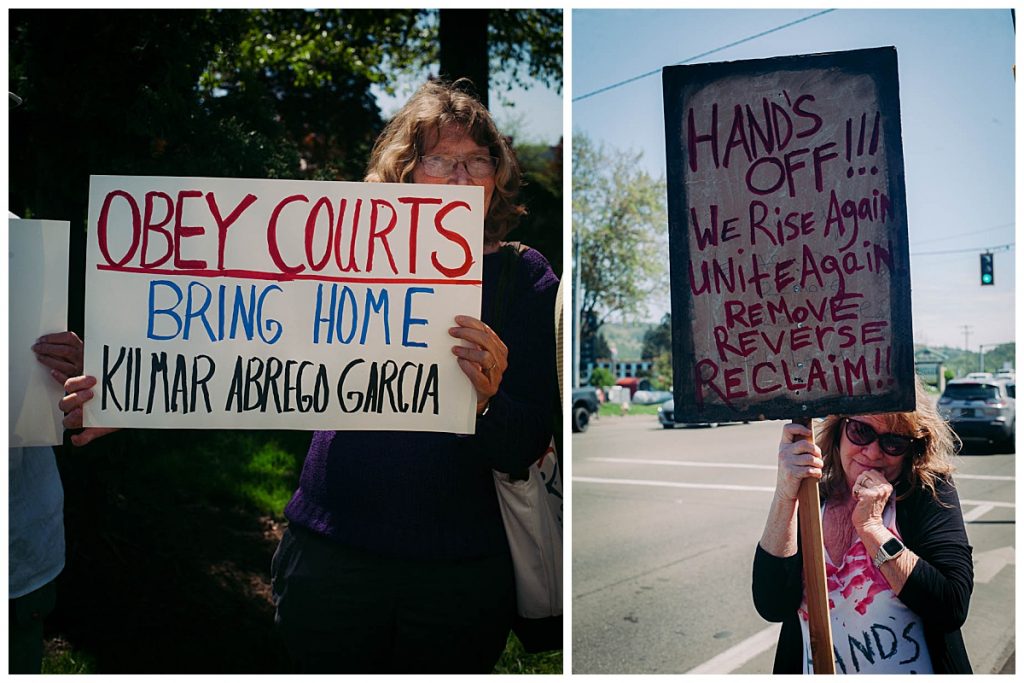 OBEY COURTS
BRING HOME
KILMAR ABREGO GARCIA
HAND'S
OFF!!!
WE RISE Again
UNiTE AgAin
REMOVE
REVERSE
RECLAiM!!
HAND'S